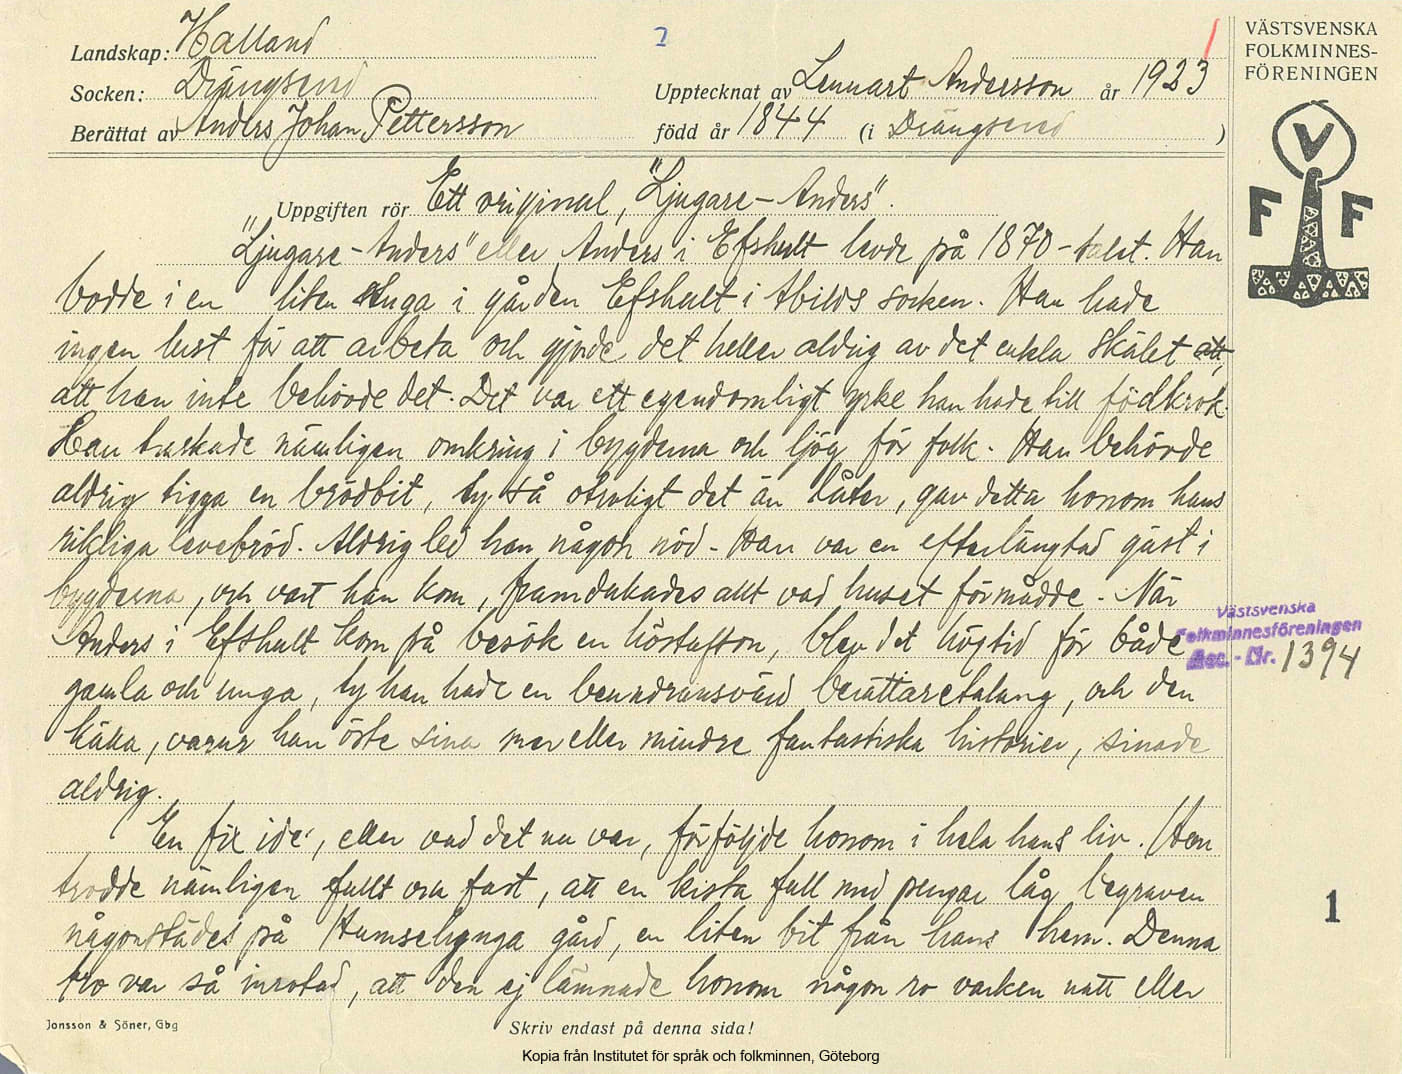 Landskap: Halland
Socken: Drängsered
Berättat av Anders Johan Pettersson
2
Upptecknat av Lennart Andersson år 1923
född år 1844 (i Drängsered)
VÄSTSVENSKA
FOLKMINNES-
FÖRENINGEN
V
F F
Uppgiften rör Ett original, "Ljugare-Anders".
"Ljugare-Anders" eller Anders i Efshult levde på 1870-talet. Han
bodde i en liten stuga i gården Efshult i Abilds socken. Han hade
ingen lust för att arbeta och gjorde det heller aldrig av det enkla skälet att,
att han inte behövde det. Det var ett egendomligt yrke han hade till födkrok.
Han traskade nämligen omkring i bygderna och ljög för folk. Han behövde
aldrig tigga en brödbit, ty så otroligt det än låter, gav detta honom hans
rikliga levebröd. Aldrig led han någon nöd. Han var en efterlängtad gäst i
bygderna, och vart han kom, framdukades allt vad huset förmådde. När
Anders i Efshult kom på besök en höstafton, blev det högtid för både
gamla och unga, ty han hade en beundransvärd berättaretalang, och den
källa, varur han öste sina mer eller mindre fantastiska historier, sinade
aldrig.
En fix idé, eller vad det nu var, förföljde honom i hela hans liv. Han
trodde nämligen fullt och fast, att en kista full med pengar låg begraven
någonstädes på gård, en liten bit från hans hem. Denna
tro var så inrotad, att den ej lämnade honom någon ro varken natt eller
Västsvenska
Folkminnesföreningen
Acc. - Nr. 1394
1
Jonsson & Söner, Gbg
Skriv endast på denna sida!
Kopia från Institutet för språk och folkminnen, Göteborg